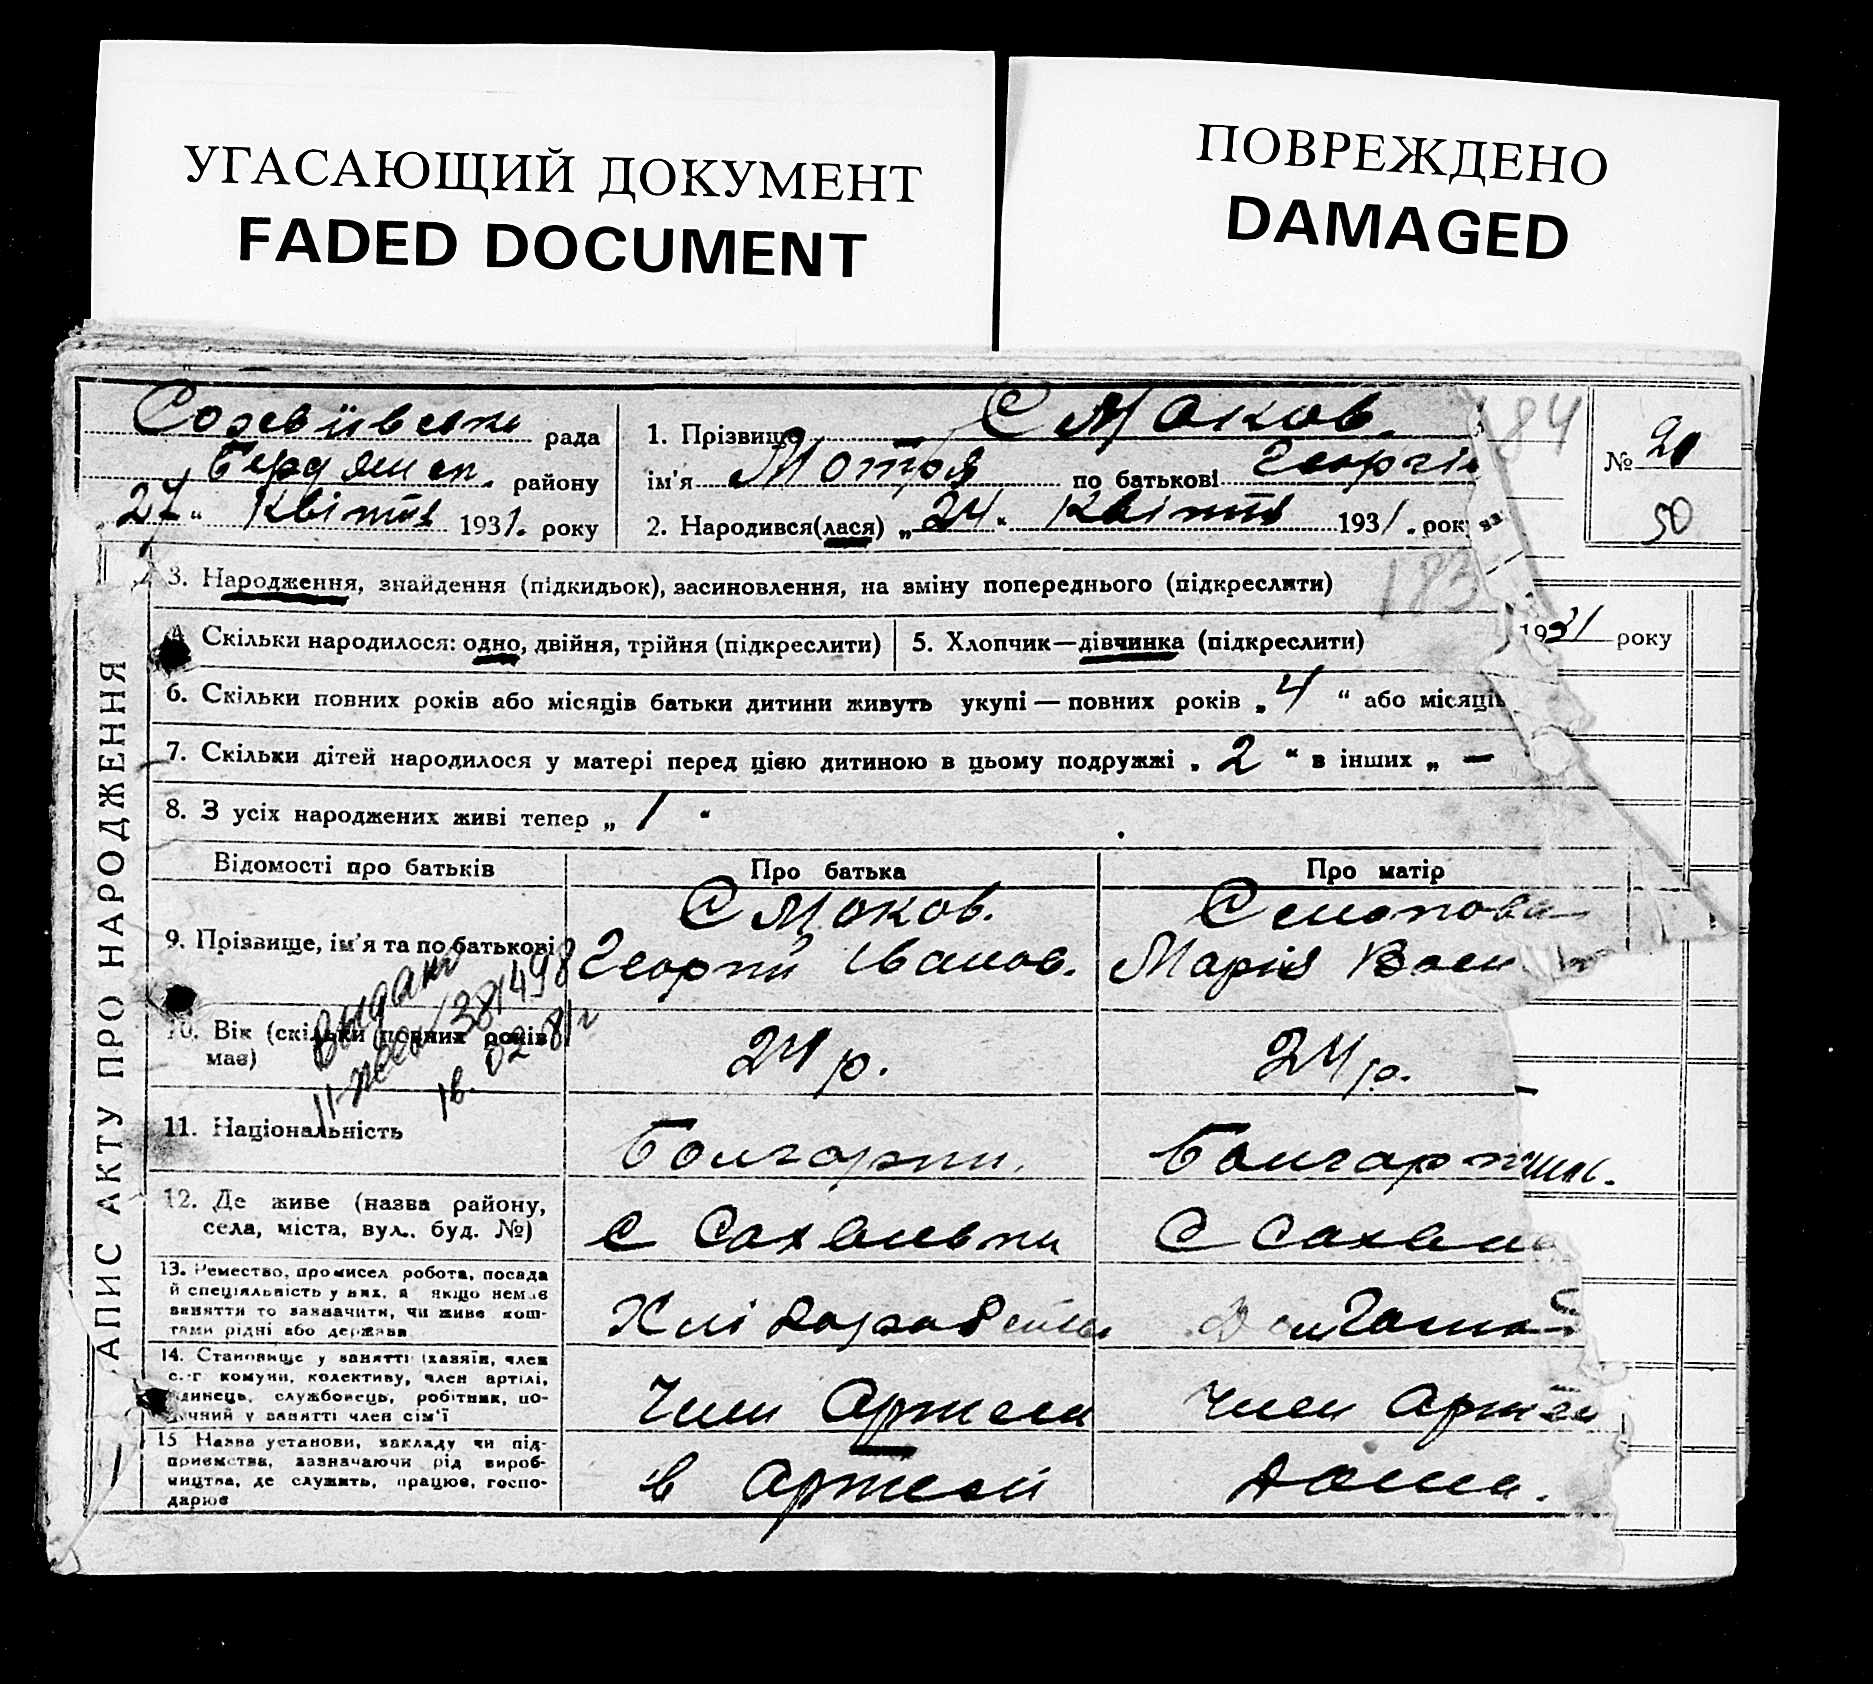 УГАСАЮЩИЙ ДОКУМЕНТ
FADED DOCUMENT
ПОВРЕЖДЕНО
DAMAGED
рада
Бердянськ. району
27 " Квітня 1931. року
1. Прізвище Смоков.
ім'я Мотря по батькові Георгі
2. Народився(лася) „ 24 " Квітня 1931. рок
184
№ 21
50
183
3. Народження, знайдення (підкидьок), засиновлення, на зміну попереднього (підкреслити)
4. Скільки народилося: одно, двійня, трійня (підкреслити)
5. Хлопчик—дівчинка (підкреслити)
1931 року
6. Скільки повних років або місяців батьки дитини живуть укупі — повних років „ 4 " або місяців
7. Скільки дітей народилося у матері перед цією дитиною в цьому подружжі „ 2 " в інших „ —
8. З усіх народжених живі тепер „ 1 "
АПИС АКТУ ПРО НАРОДЖЕННЯ
Відомості про батьків
Про батька
Про матір
9. Прізвище, ім'я та по батькові
Смоков.
Георгій Іванов.
Марія Васи
10. Вік (скільки повних років має)
24 р.
24 р.
Выдано
381498
02 81г
11. Національність
Болгарин.
12. Де живе (назва району,
села, міста, вул., буд. №)
с
С
13. Ремество, промисел, робота, посада
й спеціяльність у них, а якщо немає
заняття то зазначити, чи живе кош-
тами рідні або держави
Хлібороб
14. Становище у занятті (хазяїн, член
с.-г комуни, колективу, член артілі,
одинець, службовець, робітник, по-
мічний у занятті член сім'ї
Член Артели
Член Артели
15 Назва установи, закладу чи під-
приємства, зазначаючи рід вироб-
ництва, де служить, працює, госпо-
дарює
в Артелі
Дома.